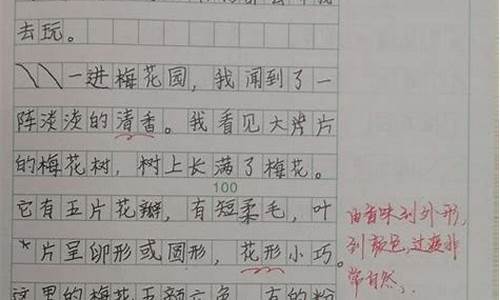 去玩。
一进梅花园，我闻到了一
阵淡淡的清香。我看见大片片
的梅花树，树上长满了梅花。
100
它有五片花瓣，有短柔毛，叶
片呈卵形或圆形，花形小巧。
这里的梅花五颜六色，有的粉
由香味到外形，
到颜色，过渡非
常自然。